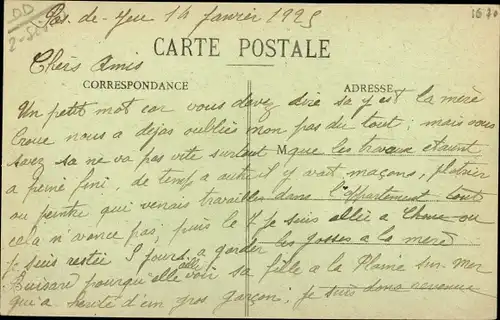 Pas. de-Jeu 14 Janvier 1925
1670
CARTE POSTALE
Chèrs Amis
CORRESPONDANCE
ADRESSE
Un petit mot car vous devez dire sa y est la mère
Croue nous a dejas oubliés mon pas du tout; mais vous
savez sa ne va pas vite surtout que les travaux étaint
M
a peine fini de temp a autre il y vait maçons, platrier
ou peintre qui venais travailler dans l'appartement tout
cela n'avance pas, puis le 7 je suis allée a ou
je suis restée 8 jours a garder les gosses a la mère
Buisard pourqu'elle aille voir sa fille a la Plaine sur-Mer
qui a heurité d'un gros garçon, je suis donc revenue